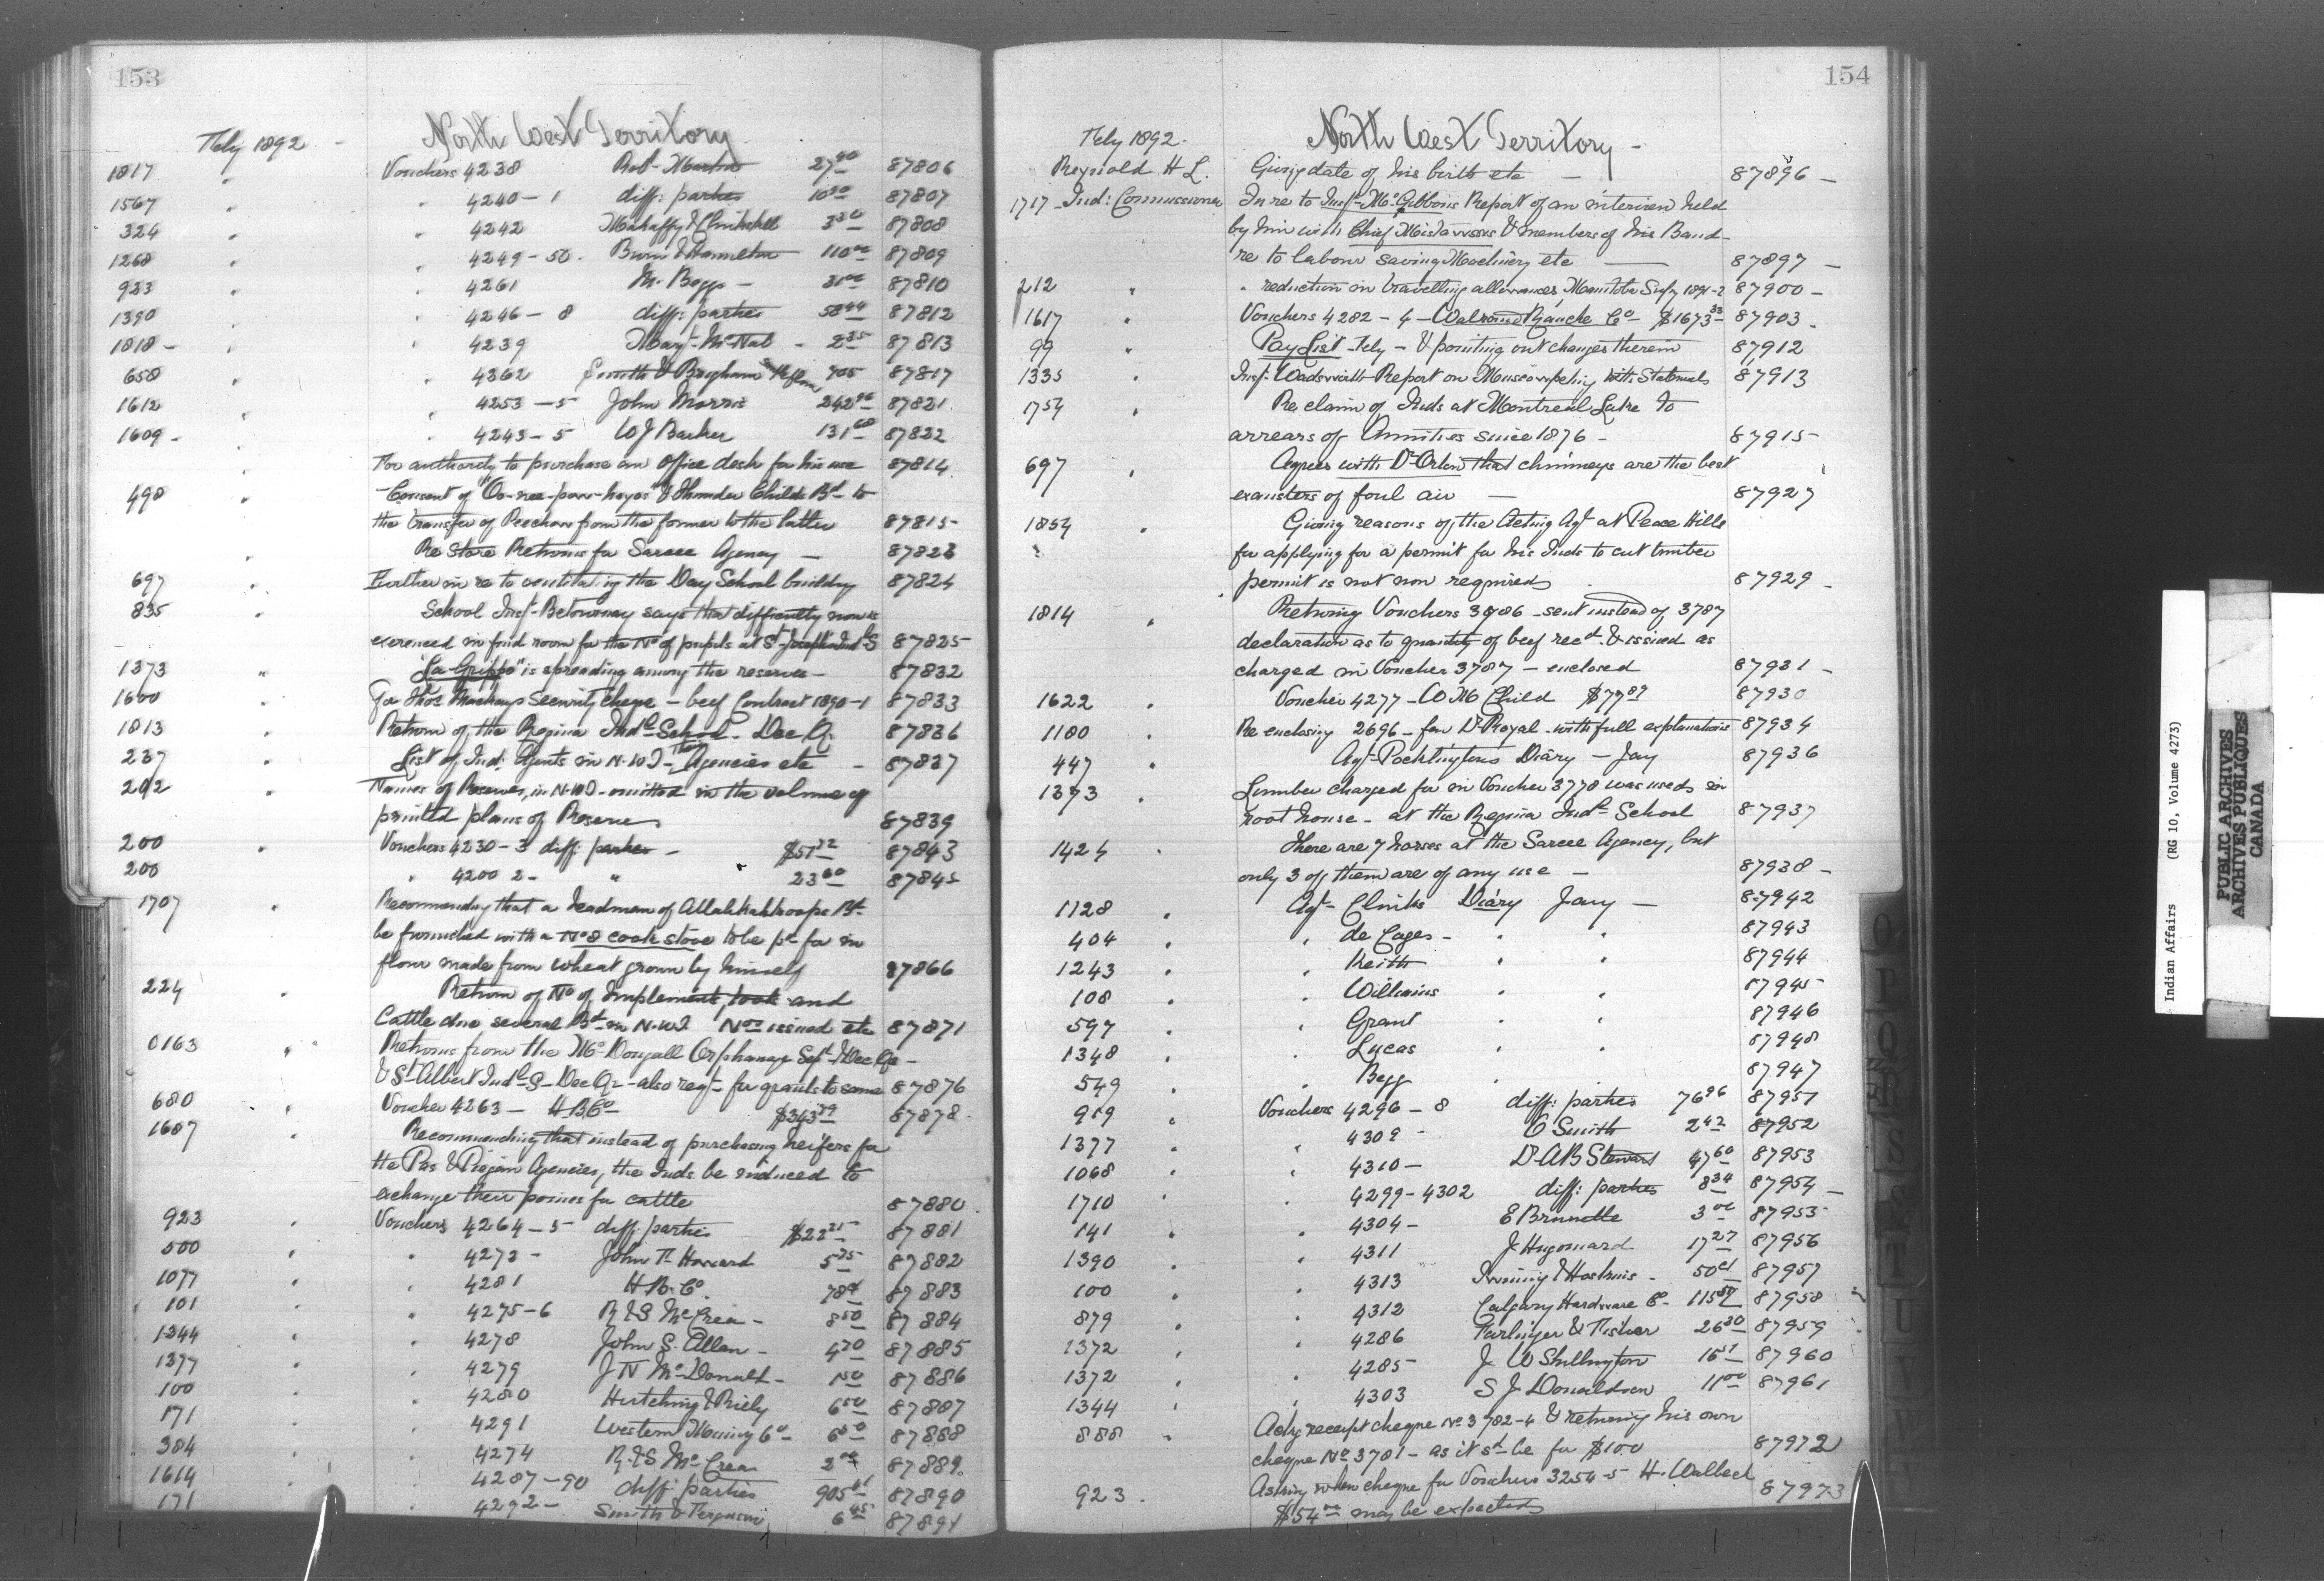 153
North West Territory
Feby 1892
1817 " Vouchers 4238 Rob. Martin 27 40 87806
1567 " " 4240-1 diff: parties 10 50 87807
324 " " 4242 Mahaffy & Clinkskill 3 50 87808
1268 " " 4249-50. Burn & Hamilton 110 00 87809
923 " " 4261 M. Begg - 31 00 87810
1390 " " 4246-8 diff: parties 58 44 87812
1818 - " " 4239 Mary McNab - 2 35 87813
658 " " 4362 Smith & Brigham 705 87817
1612 " " 4253-5 John Morris 242 96 87821
1609 - " " 4243-5 W J Barker 131 60 87822
" For authority to purchase an office desk for his use 87814
498 " Consent of & Thunder Childs Bd to
the transfer of from the former to the latter 87815
" Re Store Returns for Sarcee Agency - 87823
697 " Further in re to ventilating the Day School building 87824
835 " School Insp. Betournay says that difficulty now is
exerenced in find room for the No of pupils at St Josephs Ind S 87825
1373 " "La Grippe" is spreading among the reserves - 87832
1600 " For Thos Mackays Security Cheque - beef Contract 1890-1 87833
1813 " Return of the Regina Indl School - Dec Qr 87836
237 " List of Ind: Agents in N.W.T - Their Agencies etc - 87837
202 " Names of Reserves, in N.W.T - omitted in the volume of
printed plans of Reserves 87839
200 " Vouchers 4230-3 diff: parties - $51 22 87843
200 " 4200 2- " 23 60 87845
1707 " Recommending that a headman of Band
be furnished with a No 8 cook stove to be pd for in
flour made from wheat grown by himself 87866
224 " Return of No of Implements, tools and
Cattle due several Bds in N.W.T Nos issued etc 87871
0163 " " Returns from the McDougall Orphanage Sept & Dec Qrs -
& St Albert Indl S - Dec Qr - also reqt for grants to same 87876
680 " Voucher 4263 - H B Co $343 79 87878.
1607 " Recommending that instead of purchasing heifers for
the Pas & Piegan Agencies, the Inds be induced to
exchange their ponies for cattle 87880.
923 " Vouchers 4264-5 diff: parties $22 25 87881
500 " " 4273 - John T. Howard 5 35 87882
1077 " " 4281 H B. Co. 78 87883
101 " " 4275-6 R & S McCrea - 8 50 87884
1344 " " 4278 John S. Allen - 4 70 87885
1377 " " 4279 J N McDonald - 1 50 87886
100 " " 4280 Hutching & Riely 6 50 87887
171 " " 4291 Western Mining Co - 6 50 87888
384 " " 4274 R & S McCrea 2 87889.
1614 " " 4287-90 diff: parties 905 87890
171 " " 4292 - Smith & Ferguson 6 45 87891
154
North West Territory -
Feby 1892.
Reynold H L. Giving date of his birth etc - 87896 -
1717 - Ind: Commissioner In re to Insp. McGibbons Report of an interview held
by him with Chief & members of his Band -
re to labour saving Machinery etc - 87897 -
212 " " reduction in travelling allowances, Manitoba Supy 1891-2 87900 -
1617 " Vouchers 4282-4 - Walrond Ranche Co $1673 33 87903 -
99 " Pay List - Feby - & pointing out changes therein 87912
1335 " Insp. Wadsworth Report on Muscowpetung with Statements 87913
1754 " Re claim of Inds at Montreal Lake to
arrears of Annuities since 1876 - 87915
697 " Agrees with Dr Orton that chimneys are the best
exausters of foul air - 87927
1854 " Giving reasons of the Acting Agt at Peace Hills
for applying for a permit for his Inds to cut timber
permit is not now required 87929 -
1814 " Returning Vouchers 3786 - sent instead of 3787
declaration as to quantity of beef recd & issued as
charged in Voucher 3787 - enclosed 87931 -
1622 " Voucher 4277 - W M Child $77 89 87930
1180 " Re enclosing 2696 - for Dr Royal - with full explanations 87934
447 " Agt Pocklingtons Diary - Jay 87936
1373 " Lumber charged for in Voucher 3778 was used in
root house - at the Regina Indl School 87937
1424 " There are 7 horses at the Sarcee Agency, but
only 3 of them are of any use - 87938 -
1128 " Agt Clinks Diary Jany - 87942
404 " " de Cazes - " " 87943
1243 " " Keith " " 87944
108 " " Williams " " 87945
597 " " Grant " " 87946
1348 " " Lucas " " 87948
549 " " Begg " " 87947
919 " Vouchers 4296-8 diff: parties 76 96 87951
1377 " " 4309 - C Smith 2 42 87952
1068 " " 4310 - Dr A B Stewart 47 60 87953
1710 " " 4299-4302 diff: parties 8 34 87954 -
141 " " 4304 - E Brunelle 3 00 87955
1390 " " 4311 J Hugonard 17 27 87956
100 " " 4313 Irvining & Hoskins - 50 87957
879 " " 4312 Calgary Hardware Co - 115 87958
1372 " " 4286 Farlinger & Fisher 26 30 87959
1372 " " 4285 J. W Shillington 16 51 87960
1344 " " 4303 S J Donaldson 11 00 87961
888 " Ackg receipt cheque No 3782-4 & returning his own
cheque No 3781 - as it sd be for $100 87972
923. Asking when cheque for Vouchers 3254-5 H. Walbeck
$54 00 may be expected 87973
Indian Affairs (RG 10, Volume 4273)
PUBLIC ARCHIVES
ARCHIVES PUBLIQUES
CANADA